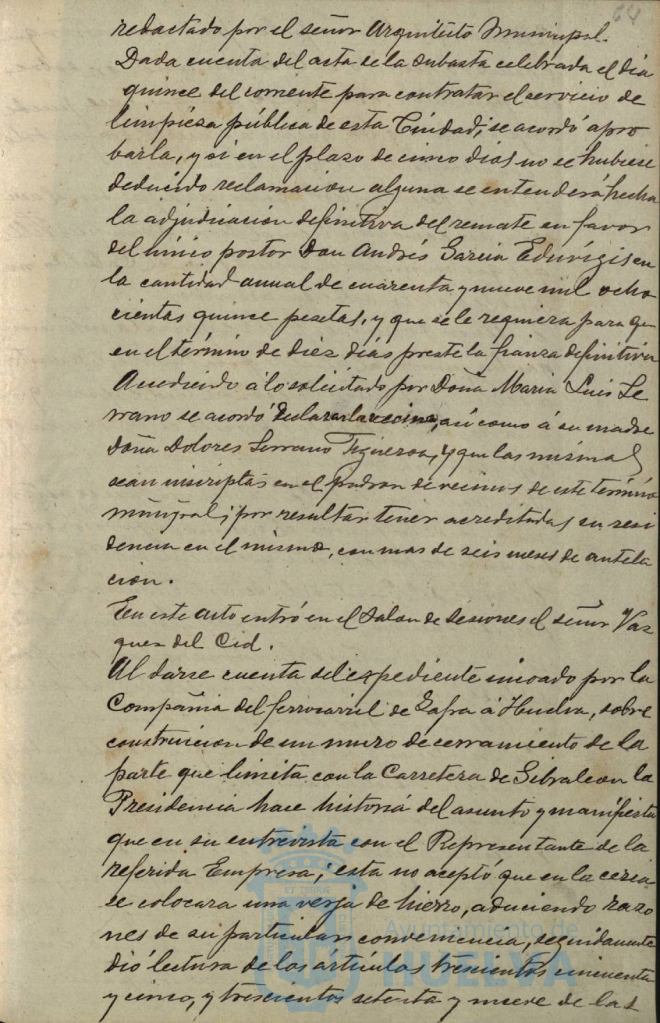 64
redactado por el señor Arquitecto Municipal.
Dada cuenta del acta de la subasta celebrada el dia
quince del corriente para contratar el servicio de
limpieza pública de esta Ciudad, se acordó apro
barla, y si en el plazo de cinco dias no se hubiese
deducido reclamacion alguna se entenderá hecha
la adjudicacion definitiva del remate en favor
del único postor Don Andrés Garcia Eduvigis en
la cantidad anual de cuarenta y nueve mil ocho
cientas quince pesetas, y que se le requiera para que
en el término de diez dias preste la fianza definitiva
Accediendo á lo solicitado por Doña Maria Luis Se
rrano se acordó declararla vecina, asi como á su madre
Doña Dolores Serrano Figueroa, y que las mismas
sean inscriptas en el padron de vecinos de este término
municipal, por resultar tener acreditada su resi
dencia en el mismo, con mas de seis meses de antela
cion.
En este acto entró en el Salon de Sesiones el señor Vaz
quez del Cid.
Al darse cuenta del expediente incoado por la
Compañia del ferrocarril de Zafra á Huelva, sobre
construccion de un muro de cerramiento de la
parte que limita con la Carretera de Gibraleon la
Presidencia hace historia del asunto y manifiesta
que en su entrevista con el Representante de la
referida Empresa, esta no aceptó que en la cerca
se colocara una verja de hierro, aduciendo razo
nes de su particular conveniencia, seguidamente
dió lectura de los artículos trescientos cincuenta
y cinco, y trescientos setenta y nueve de las
Ayuntamiento de
HUELVA